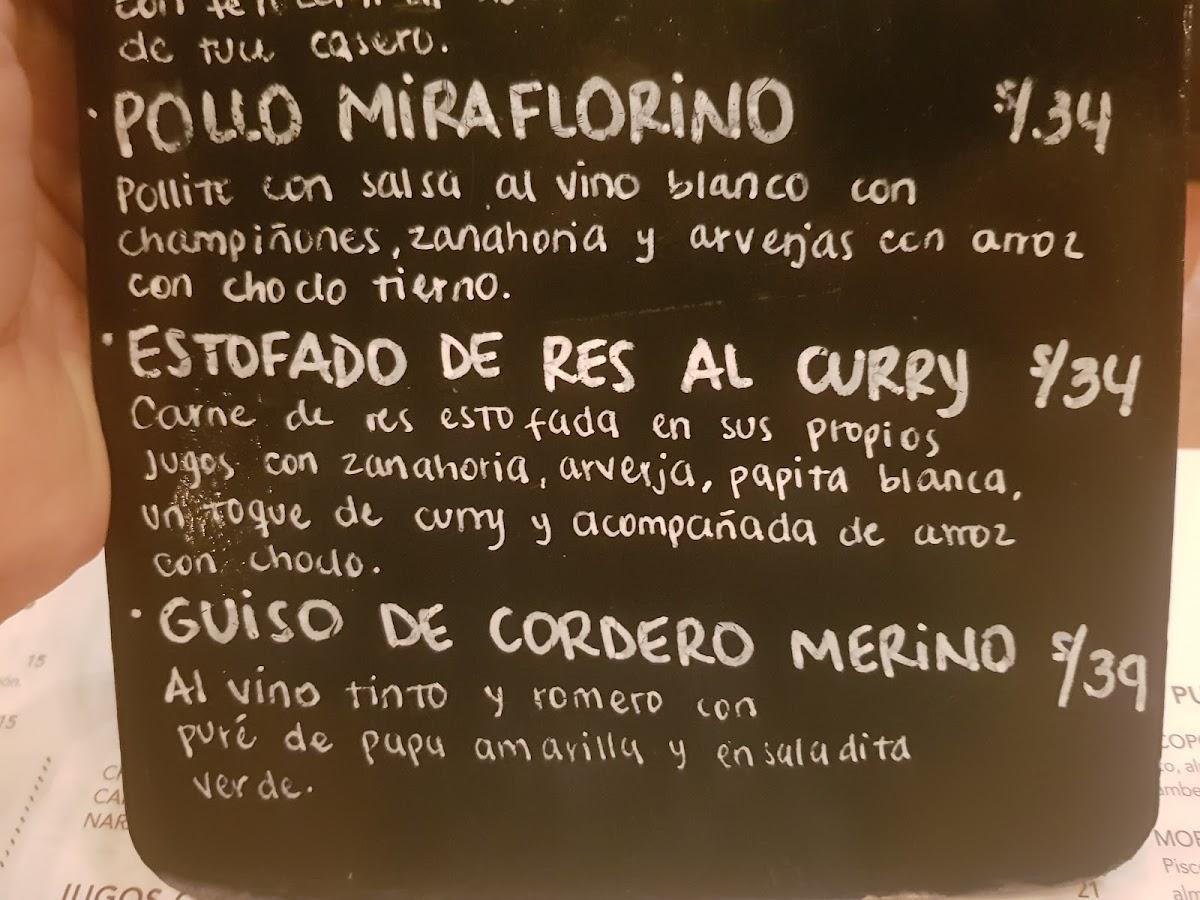 de tuco casero.
· POLLO MIRAFLORINO S/.34
Pollito con salsa al vino blanco con
champiñones, zanahoria y arverjas con arroz
con choclo tierno.
· ESTOFADO DE RES AL CURRY S/34
Carne de res estofada en sus propios
jugos con zanahoria, arverja, papita blanca,
un toque de curry y acompañada de arroz
con choclo.
· GUISO DE CORDERO MERINO S/39
Al vino tinto y romero con
puré de papa amarilla y ensaladita
verde.
15
15
JUGOS
21
Pisc